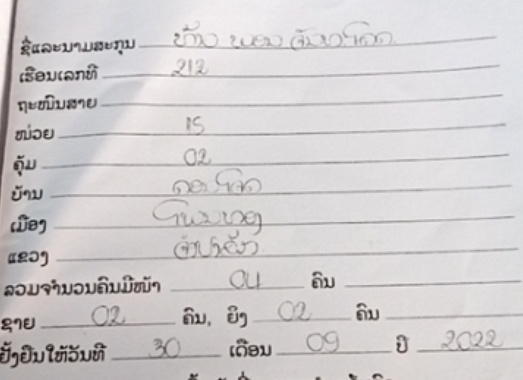 ຊື່ແລະນາມສະກຸນ ທ້າວ ພອນ ຈັນທະໂຄດ
ເຮືອນເລກທີ 212
ຖະໜົນສາຍ
ໜ່ວຍ 15
ຄຸ້ມ 02
ບ້ານ ດອນໂຈດ
ເມືອງ ໂພນທອງ
ແຂວງ ຈຳປາສັກ
ລວມຈຳນວນຄົນມີໜ້າ 04 ຄົນ
ຊາຍ 02 ຄົນ, ຍິງ 02 ຄົນ
ຢັ້ງຢືນໃຫ້ວັນທີ 30 ເດືອນ 09 ປີ 2022